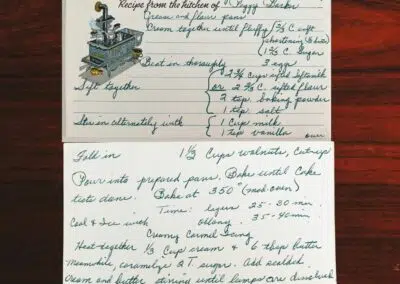 Recipe from the kitchen of Peggy
Cream and flour pans
Cream together until fluffy { 2/3 C soft
shortening
1 2/3 C. Sugar
Beat in thoroughly 3 eggs
2 3/4 Cups sifted Softasilk
Sift together or 2 2/3 C. sifted flour
2 tsp baking powder
1 tsp salt
Stir in alternately with { 1 Cup milk
1 tsp vanilla
over
Fold in 1 1/2 Cups walnuts, cut up
Pour into prepared pans. Bake until Cake
tests done. Bake at 350° (mod. oven)
Time: layers 25-30 min.
Cool & Ice with oblong 35-40 min.
Creamy Carmel Icing
Heat together 1/3 Cup cream & 6 tbsp butter
Meanwhile, caramelize 2 T. sugar. Add scalded
cream and butter stirring until lumps are dissolved